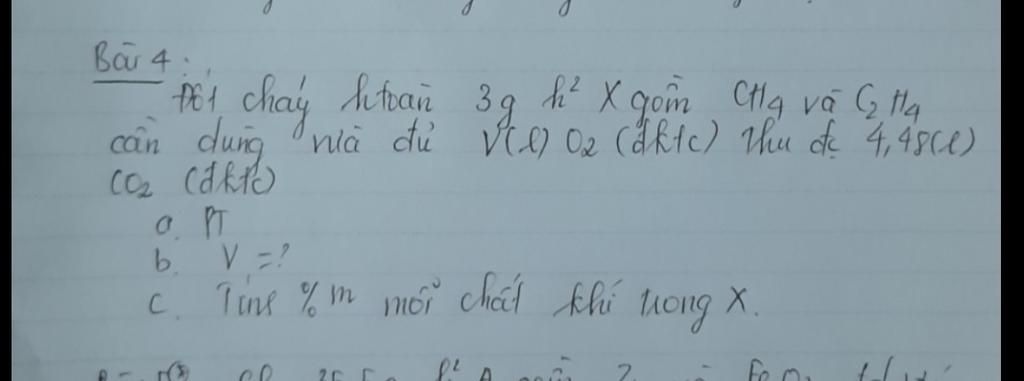 Bài 4:
Đốt cháy htoàn 3g h² X gồm CH4 và C2H4
cần dùng vừa đủ V(l) O2 (đktc) thu đc 4,48(l)
CO2 (đktc)
a. PT
b. V = ?
c. Tính %m mỗi chất khí trong X.